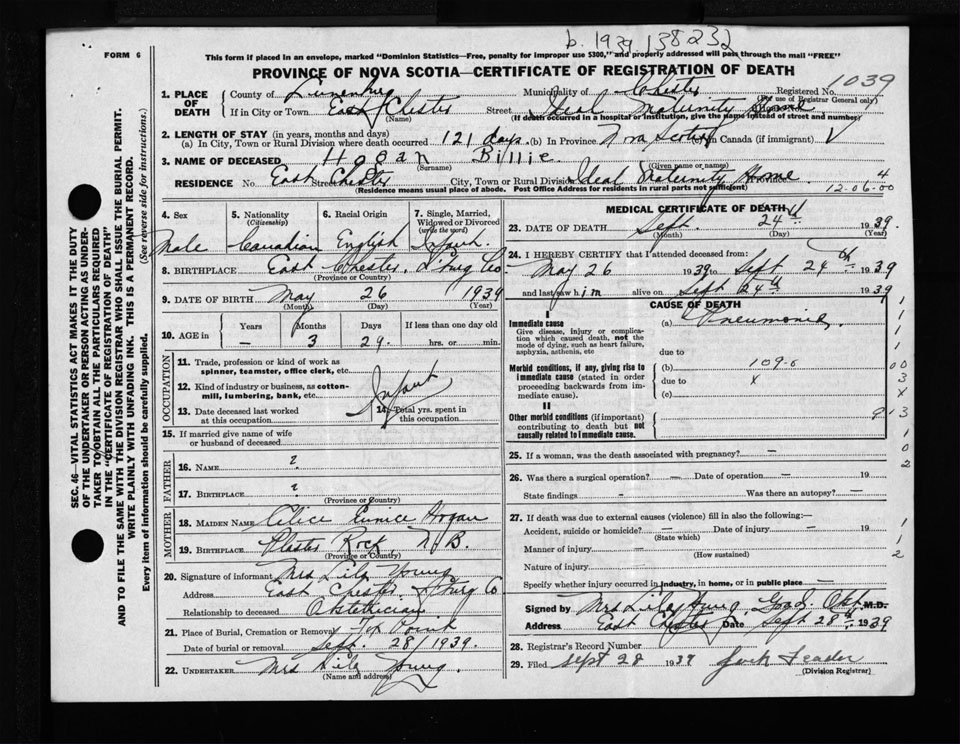 b. 1939. 138232
FORM 6
This form if placed in an envelope, marked "Dominion Statistics—Free, penalty for improper use $300," and properly addressed will pass through the mail "FREE"
PROVINCE OF NOVA SCOTIA—CERTIFICATE OF REGISTRATION OF DEATH
1039
1. PLACE OF DEATH County of Lunenburg Municipality of Chester Registered No.
(For use of Registrar General only)
If in City or Town East Chester (Name) Street Ideal Maternity Home
(If death occurred in a hospital or institution, give the name instead of street and number)
2. LENGTH OF STAY (in years, months and days)
(a) In City, Town or Rural Division where death occurred 121 days. (b) In Province Nova Scotia (c) in Canada (if immigrant) V
3. NAME OF DECEASED Hogan Billie.
(Surname) (Given name or names)
RESIDENCE No. Street East Chester City, Town or Rural Division Ideal Maternity Home. Province 4
(Residence means usual place of abode. Post Office Address for residents in rural parts not sufficient)
12-06-00
4. Sex 5. Nationality (Citizenship) 6. Racial Origin 7. Single, Married, Widowed or Divorced (write the word)
Male Canadian English Infant.
8. BIRTHPLACE East Chester, L'burg Co
(Province or Country)
9. DATE OF BIRTH May 26 1939
(Month) (Day) (Year)
10. AGE in Years Months Days If less than one day old
— 3 29. hrs. or min.
OCCUPATION
11. Trade, profession or kind of work as spinner, teamster, office clerk, etc.
12. Kind of industry or business, as cotton-mill, lumbering, bank, etc.
Infant
13. Date deceased last worked at this occupation
14. Total yrs. spent in this occupation
15. If married give name of wife or husband of deceased
FATHER
16. NAME ?
17. BIRTHPLACE ?
(Province or Country)
MOTHER
18. MAIDEN NAME Alice Eunice Hogan
19. BIRTHPLACE Plaster Rock N.B.
(Province or Country)
20. Signature of informant Mrs Lila Young
Address East Chester L'burg Co
Relationship to deceased Obstetrician
21. Place of Burial, Cremation or Removal Fox Point
Date of burial or removal Sept. 28/1939.
22. UNDERTAKER Mrs Lila Young.
(Name and address)
MEDICAL CERTIFICATE OF DEATH
23. DATE OF DEATH Sept. 24th 1939.
(Month) (Day) (Year)
24. I HEREBY CERTIFY that I attended deceased from:
May 26 1939 to Sept 24th 1939
and last saw him alive on Sept 24th 1939
CAUSE OF DEATH
I
Immediate cause
Give disease, injury or complication which caused death, not the mode of dying, such as heart failure, asphyxia, asthenia, etc
(a) Pneumonia.
due to
Morbid conditions, if any, giving rise to immediate cause (stated in order proceeding backwards from immediate cause).
(b) 109-6
due to x
(c)
II
Other morbid conditions (if important) contributing to death but not causally related to immediate cause.
25. If a woman, was the death associated with pregnancy? —
26. Was there a surgical operation? — Date of operation — 19
State findings - Was there an autopsy? —
27. If death was due to external causes (violence) fill in also the following:—
Accident, suicide or homicide? — Date of injury — 19
(State which)
Manner of injury —
(How sustained)
Nature of injury —
Specify whether injury occurred in industry, in home, or in public place —
Signed by Mrs Lila Young, Grad. M.D.
Address East Chester Date Sept 28th 1939
28. Registrar's Record Number
29. Filed Sept 28 1939
(Division Registrar)
SEC. 46—VITAL STATISTICS ACT MAKES IT THE DUTY OF THE UNDERTAKER OR PERSON ACTING AS UNDERTAKER TO OBTAIN ALL THE PARTICULARS REQUIRED IN THE "CERTIFICATE OF REGISTRATION OF DEATH" AND TO FILE THE SAME WITH THE DIVISION REGISTRAR WHO SHALL ISSUE THE BURIAL PERMIT.
WRITE PLAINLY WITH UNFADING INK. THIS IS A PERMANENT RECORD.
Every item of information should be carefully supplied. (See reverse side for instructions.)